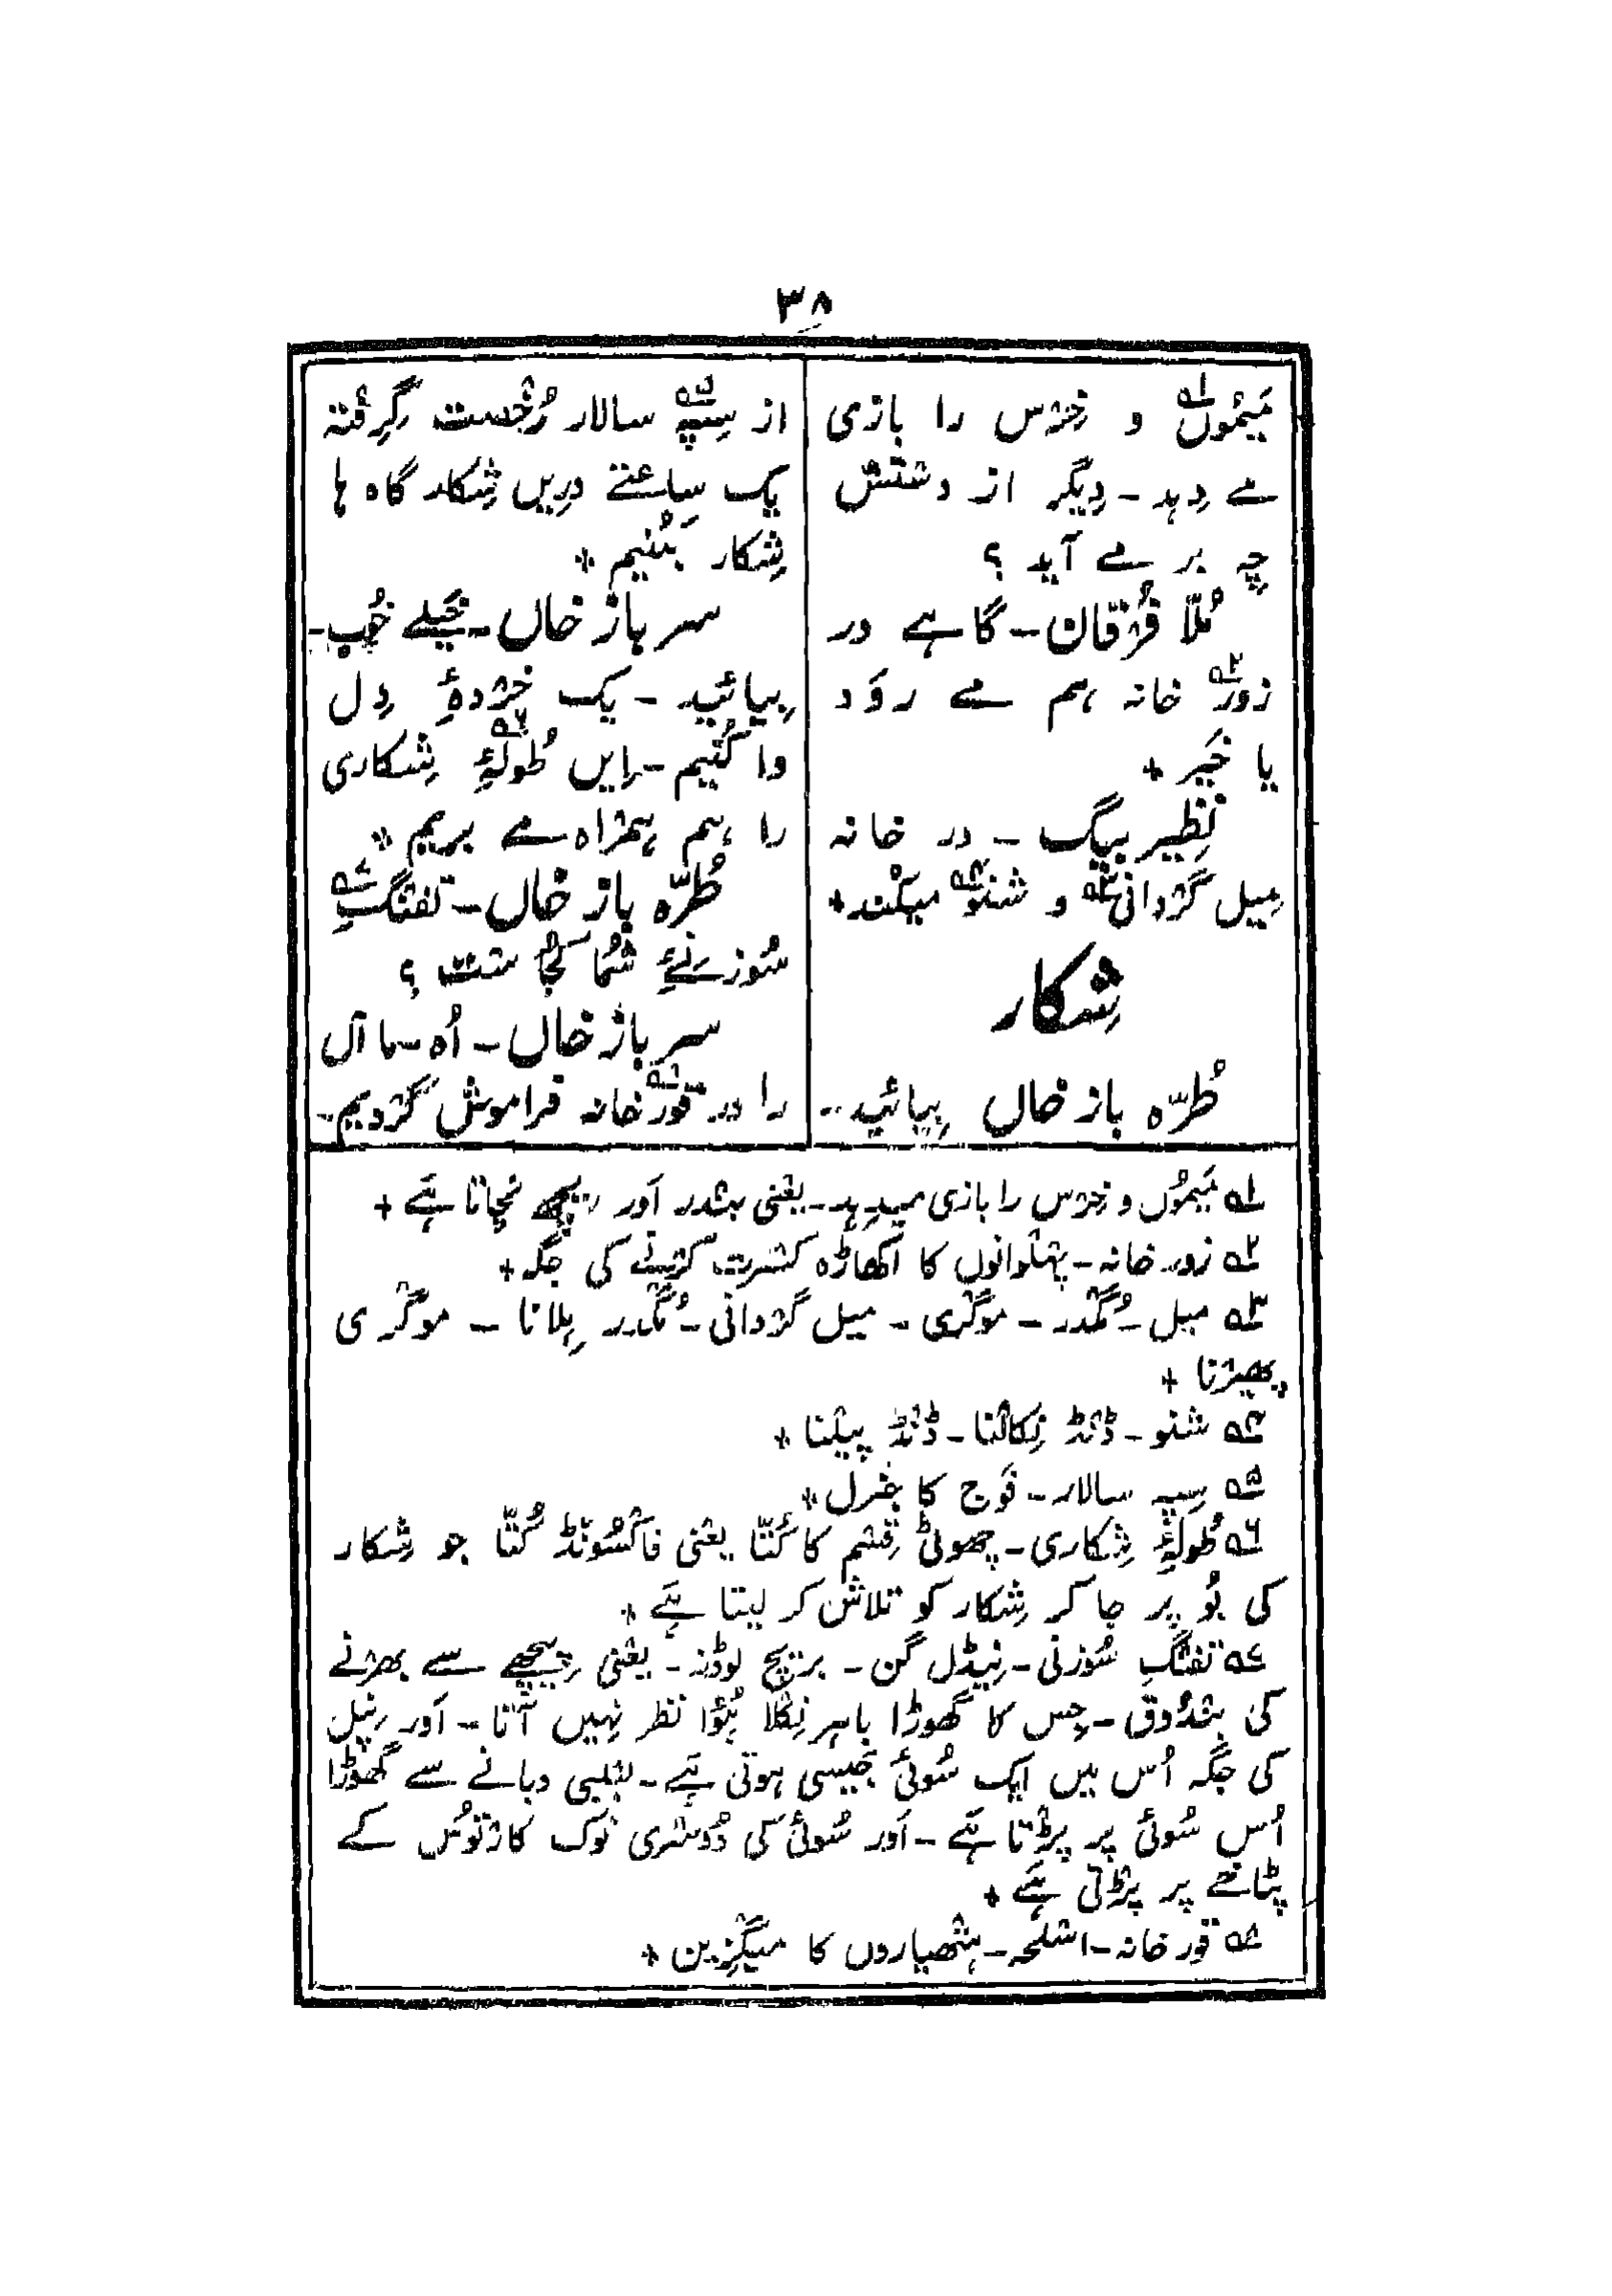 ۳۸
مَیمُوں۱؎ و خِرْس را بازی
مے دِہد۔ دِیگر از دشتش
چِہ بر مے آید ؟
مُلّا فُرْقان۔ گاہے در
زور۲؎ خانہ ہم مے روَد
یا خَیر +
نظِیر بیگ ۔ در خانہ
مِیل گرْدانی۳؎ و شنو۴؎ میکُند+
شِکار
طُرّہ باز خاں بِیائید۔
از سِپہ۵؎ سالار رُخْصت گِرِفْتہ
یک ساعتے درِیں شِکار گاہ ہا
شِکار بکُنیم +
سر باز خاں۔ خَیلے خُوب۔
بِیائید ۔ یک خُرْدۂِ دِل
وا کُنیم۔ اِیں طُولۂِ۶؎ شِکاری
را ہم ہمْراہ مے بریم +
طُرّہ باز خاں۔ تفنْگِ۷؎
سُوزنئِ شُما کُجا سْت ؟
سر باز خاں۔ اُہ ما آں
را در قور۸؎ خانہ فراموش کرْدیم۔
۱؎ مَیمُوں و خِرْس را بازی میدِہد۔ یعْنی بنْدر اَور رِیچھ نچاتا ہَے +
۲؎ زور خانہ۔ پہْلوانوں کا اکھاڑہ کسْرت کرْنے کی جگہ+
۳؎ میل۔ مُگْدر۔ موگْری۔ میل گرْدانی۔ مُگْدر ہِلانا ۔ موگْری
پھیرْنا +
۴؎ شنو۔ ڈنْڈ نِکالْنا۔ ڈنْڈ پیلنا +
۵؎ سِپہ سالار۔ فَوج کا جنْرل +
۶؎ طُولۂِ شِکاری۔ چھوٹی قِسْم کا کُتّا یعْنی فاکْسہُونْڈ کُتّا جو شِکار
کی بُو پر جا کر شِکار کو تلاش کر لیتا ہَے +
۷؎ تفنْگِ سُوزنی۔ نِیڈل گن ۔ برِیچ لوڈر۔ یعْنی پِیچھے سے بھرْنے
کی بنْدُوق۔ جِس کا گھوڑا باہر نِکْلا ہُؤا نظر نہِیں آتا۔ اَور نِپل
کی جگہ اُس میں ایک سُوئی جَیسی ہوتی ہَے۔ لبْلبی دبانے سے گھوڑا
اُس سُوئی پر پڑْتا ہَے ۔ اَور سُوئی کی دُوسْری نوک کارْتُوس کے
پٹاخے پر پڑْتی ہَے +
۸؎ قور خانہ۔ اسْلحہ۔ ہتْھیاروں کا میگْزِین +